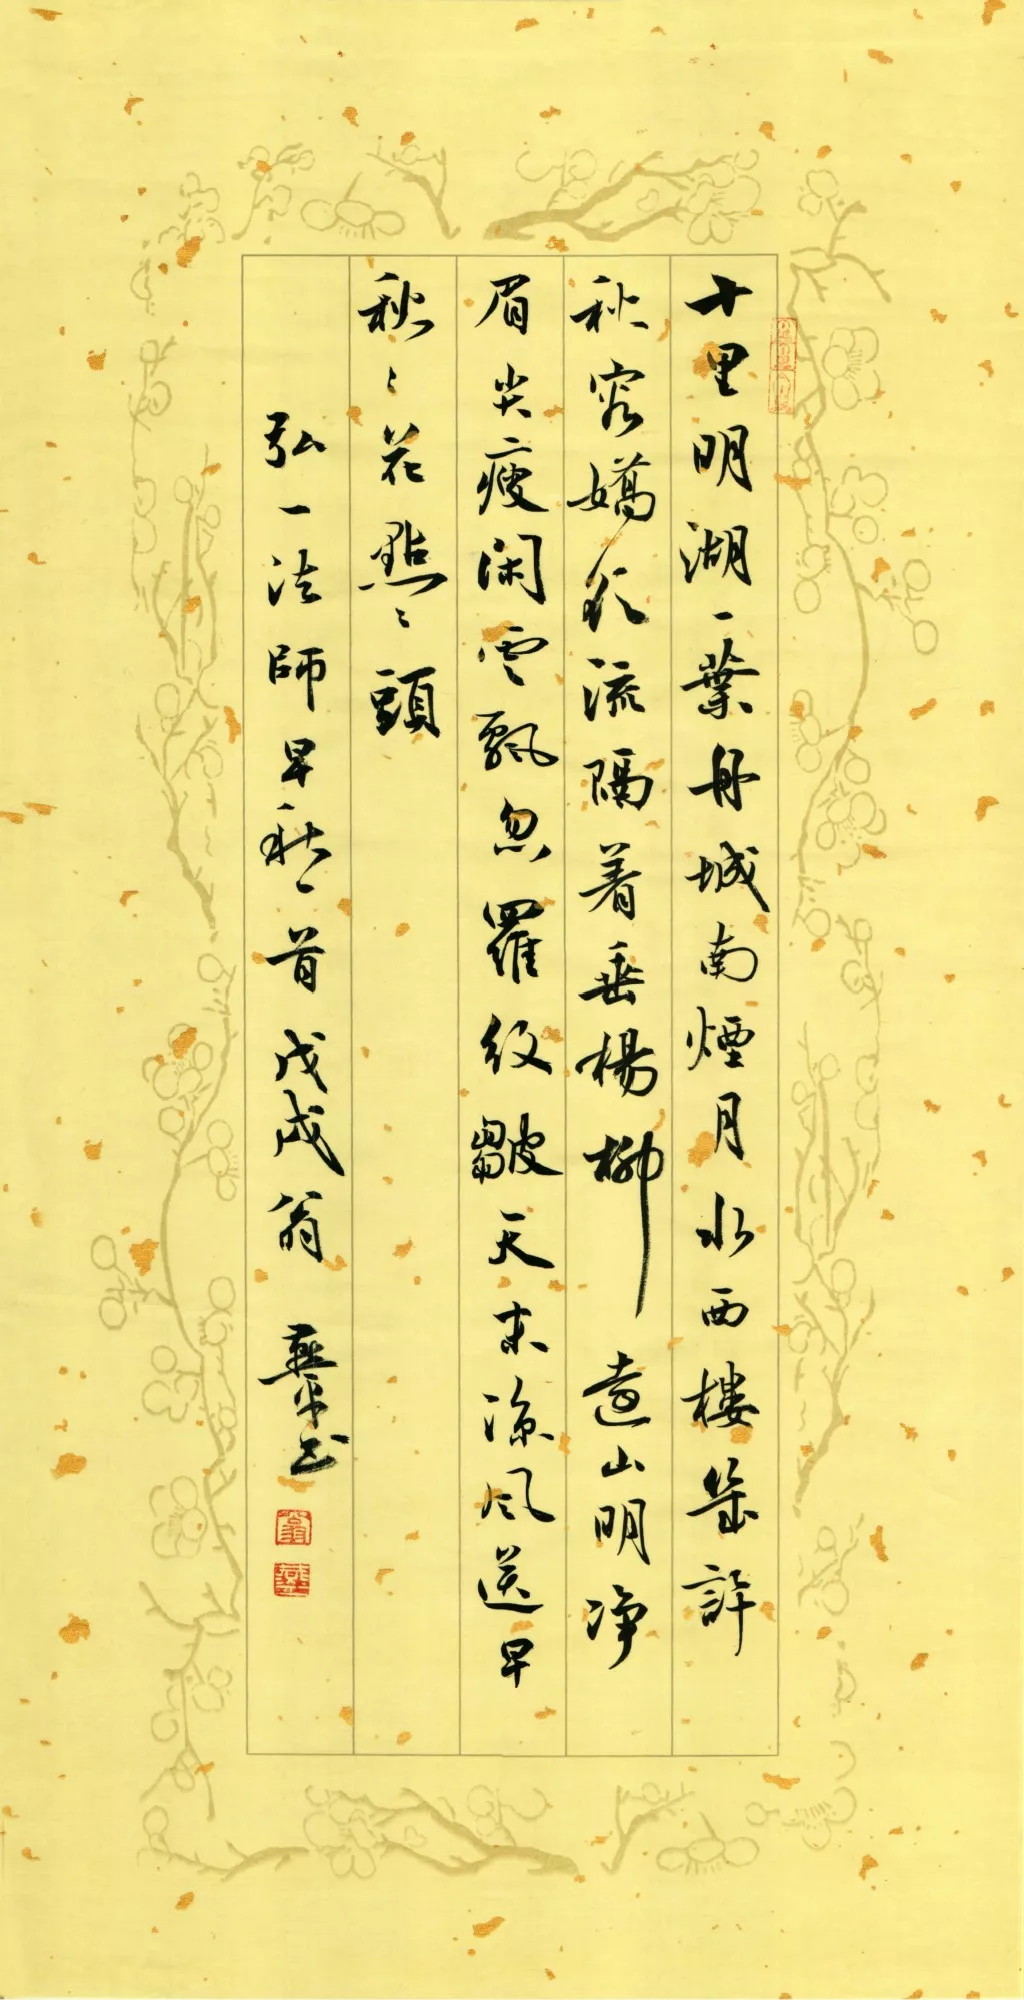 十里明湖一葉舟城南煙月水西樓幾許
秋容嬌欲流隔着垂楊柳遠山明净
眉尖瘦闲雲飄忽羅紋皺天末凉風送早
秋〻花點〻頭
弘一法師早秋一首戊戌翁燕平书